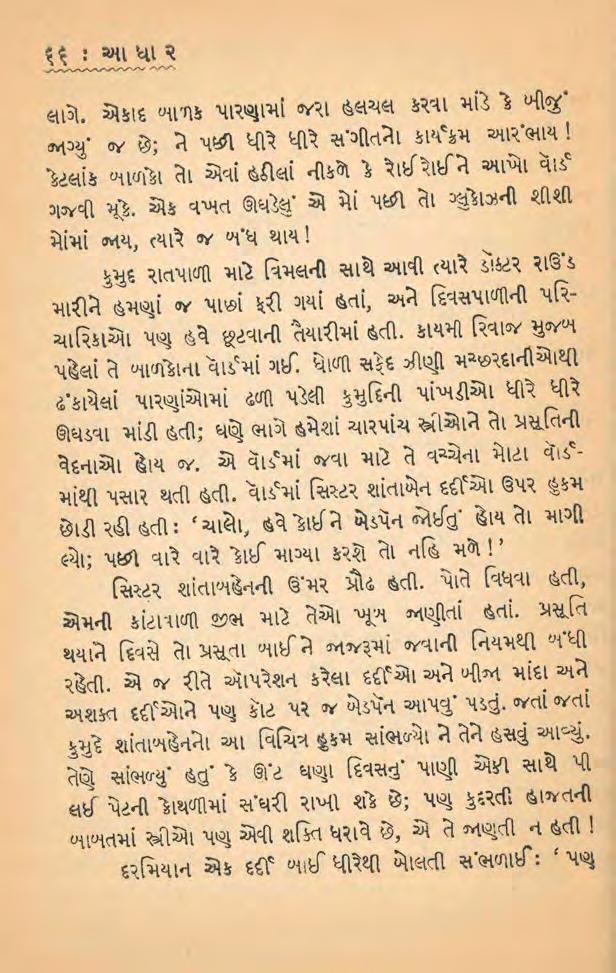 ૬૬ : આ ધા ર
લાગે. એકાદ બાળક પારણામાં જરા હલચલ કરવા માંડે કે બીજું
જાગ્યું જ છે; ને પછી ધીરે ધીરે સંગીતનો કાર્યક્રમ આરંભાય !
કેટલાંક બાળકો તો એવાં હઠીલાં નીકળે કે રોઈ રોઈ ને આખો વૉર્ડ
ગજવી મૂકે. એક વખત ઊઘડેલું એ મોં પછી તો ગ્લુકોઝની શીશી
મોંમાં જાય, ત્યારે જ બંધ થાય !
કુમુદ રાતપાળી માટે વિમલની સાથે આવી ત્યારે ડૉક્ટર રાઉંડ
મારીને હમણાં જ પાછાં ફરી ગયાં હતાં, અને દિવસપાળીની પરિ-
ચારિકાઓ પણ હવે છૂટવાની તૈયારીમાં હતી. કાયમી રિવાજ મુજબ
પહેલાં તે બાળકોના વૉર્ડમાં ગઈ. ધોળી સફેદ ઝીણી મચ્છરદાનીઓથી
ઢંકાયેલાં પારણાંઓમાં ઢળી પડેલી કુમુદિની પાંખડીઓ ધીરે ધીરે
ઊઘડવા માંડી હતી; ઘણે ભાગે હમેશાં ચારપાંચ સ્ત્રીઓને તો પ્રસૂતિની
વેદનાઓ હોય જ. એ વૉર્ડમાં જવા માટે તે વચ્ચેના મોટા વૉર્ડ-
માંથી પસાર થતી હતી. વૉર્ડમાં સિસ્ટર શાંતાબેન દર્દીઓ ઉપર હુકમ
છોડી રહી હતી : ‘ચાલો, હવે કોઈને બેડપૅન જોઈતું હોય તો માગી
લ્યો; પછી વારે વારે કોઈ માગ્યા કરશે તો નહિ મળે !’
સિસ્ટર શાંતાબહેનની ઉંમર પ્રૌઢ હતી. પોતે વિધવા હતી,
એમની કાંટાવાળી જીભ માટે તેઓ ખૂબ જાણીતાં હતાં. પ્રસૂતિ
થયાને દિવસે તો પ્રસૂતા બાઈ ને જાજરૂમાં જવાની નિયમથી બંધી
રહેતી. એ જ રીતે ઑપરેશન કરેલા દર્દીઓ અને બીજા માંદા અને
અશક્ત દર્દીઓને પણ કૉટ પર જ બેડપૅન આપવું પડતું. જતાં જતાં
કુમુદે શાંતાબહેનનો આ વિચિત્ર હુકમ સાંભળ્યો ને તેને હસવું આવ્યું.
તેણે સાંભળ્યું હતું કે ઊંટ ઘણા દિવસનું પાણી એકી સાથે પી
લઈ પેટની કોથળીમાં સંઘરી રાખી શકે છે; પણ કુદરતી હાજતની
બાબતમાં સ્ત્રીઓ પણ એવી શક્તિ ધરાવે છે, એ તે જાણતી ન હતી !
દરમિયાન એક દર્દી બાઈ ધીરેથી બોલતી સંભળાઈ : ‘ પણ